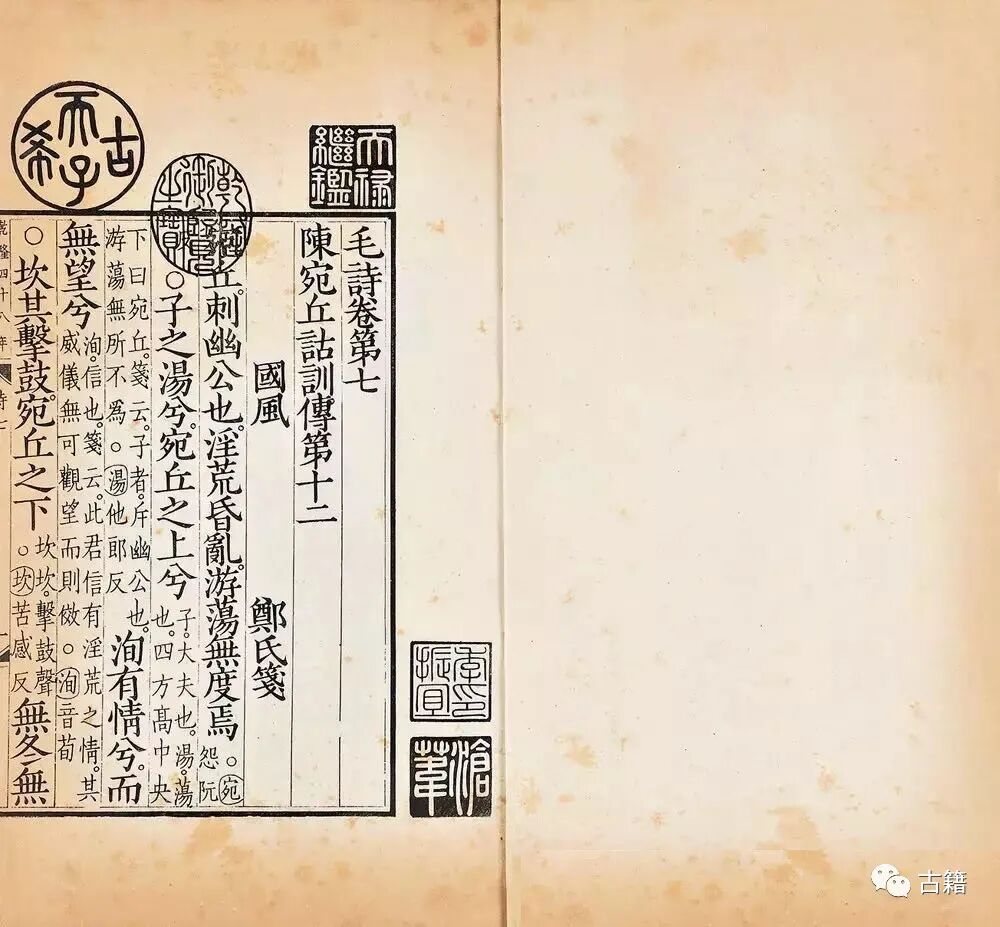 天祿繼鑑
季振宜印
滄葦
毛詩卷第七
陳宛丘詁訓傳第十二
國風 鄭氏箋
乾隆御覽之寶
丘。刺幽公也。淫荒昏亂。游蕩無度焉 ○宛怨阮
○子之湯兮。宛丘之上兮 子。大夫也。湯。蕩也。四方高中央
下曰宛丘。箋云。子者。斥幽公也。游蕩無所不爲。○湯他郎反 洵有情兮。而
無望兮 洵。信也。箋云。此君信有淫荒之情。其威儀無可觀望而則傚。○洵音荀
古希天子
○坎其擊鼓。宛丘之下 坎坎。擊鼓聲。○坎苦感反 無冬無
乾隆四十八年
詩七
古籍